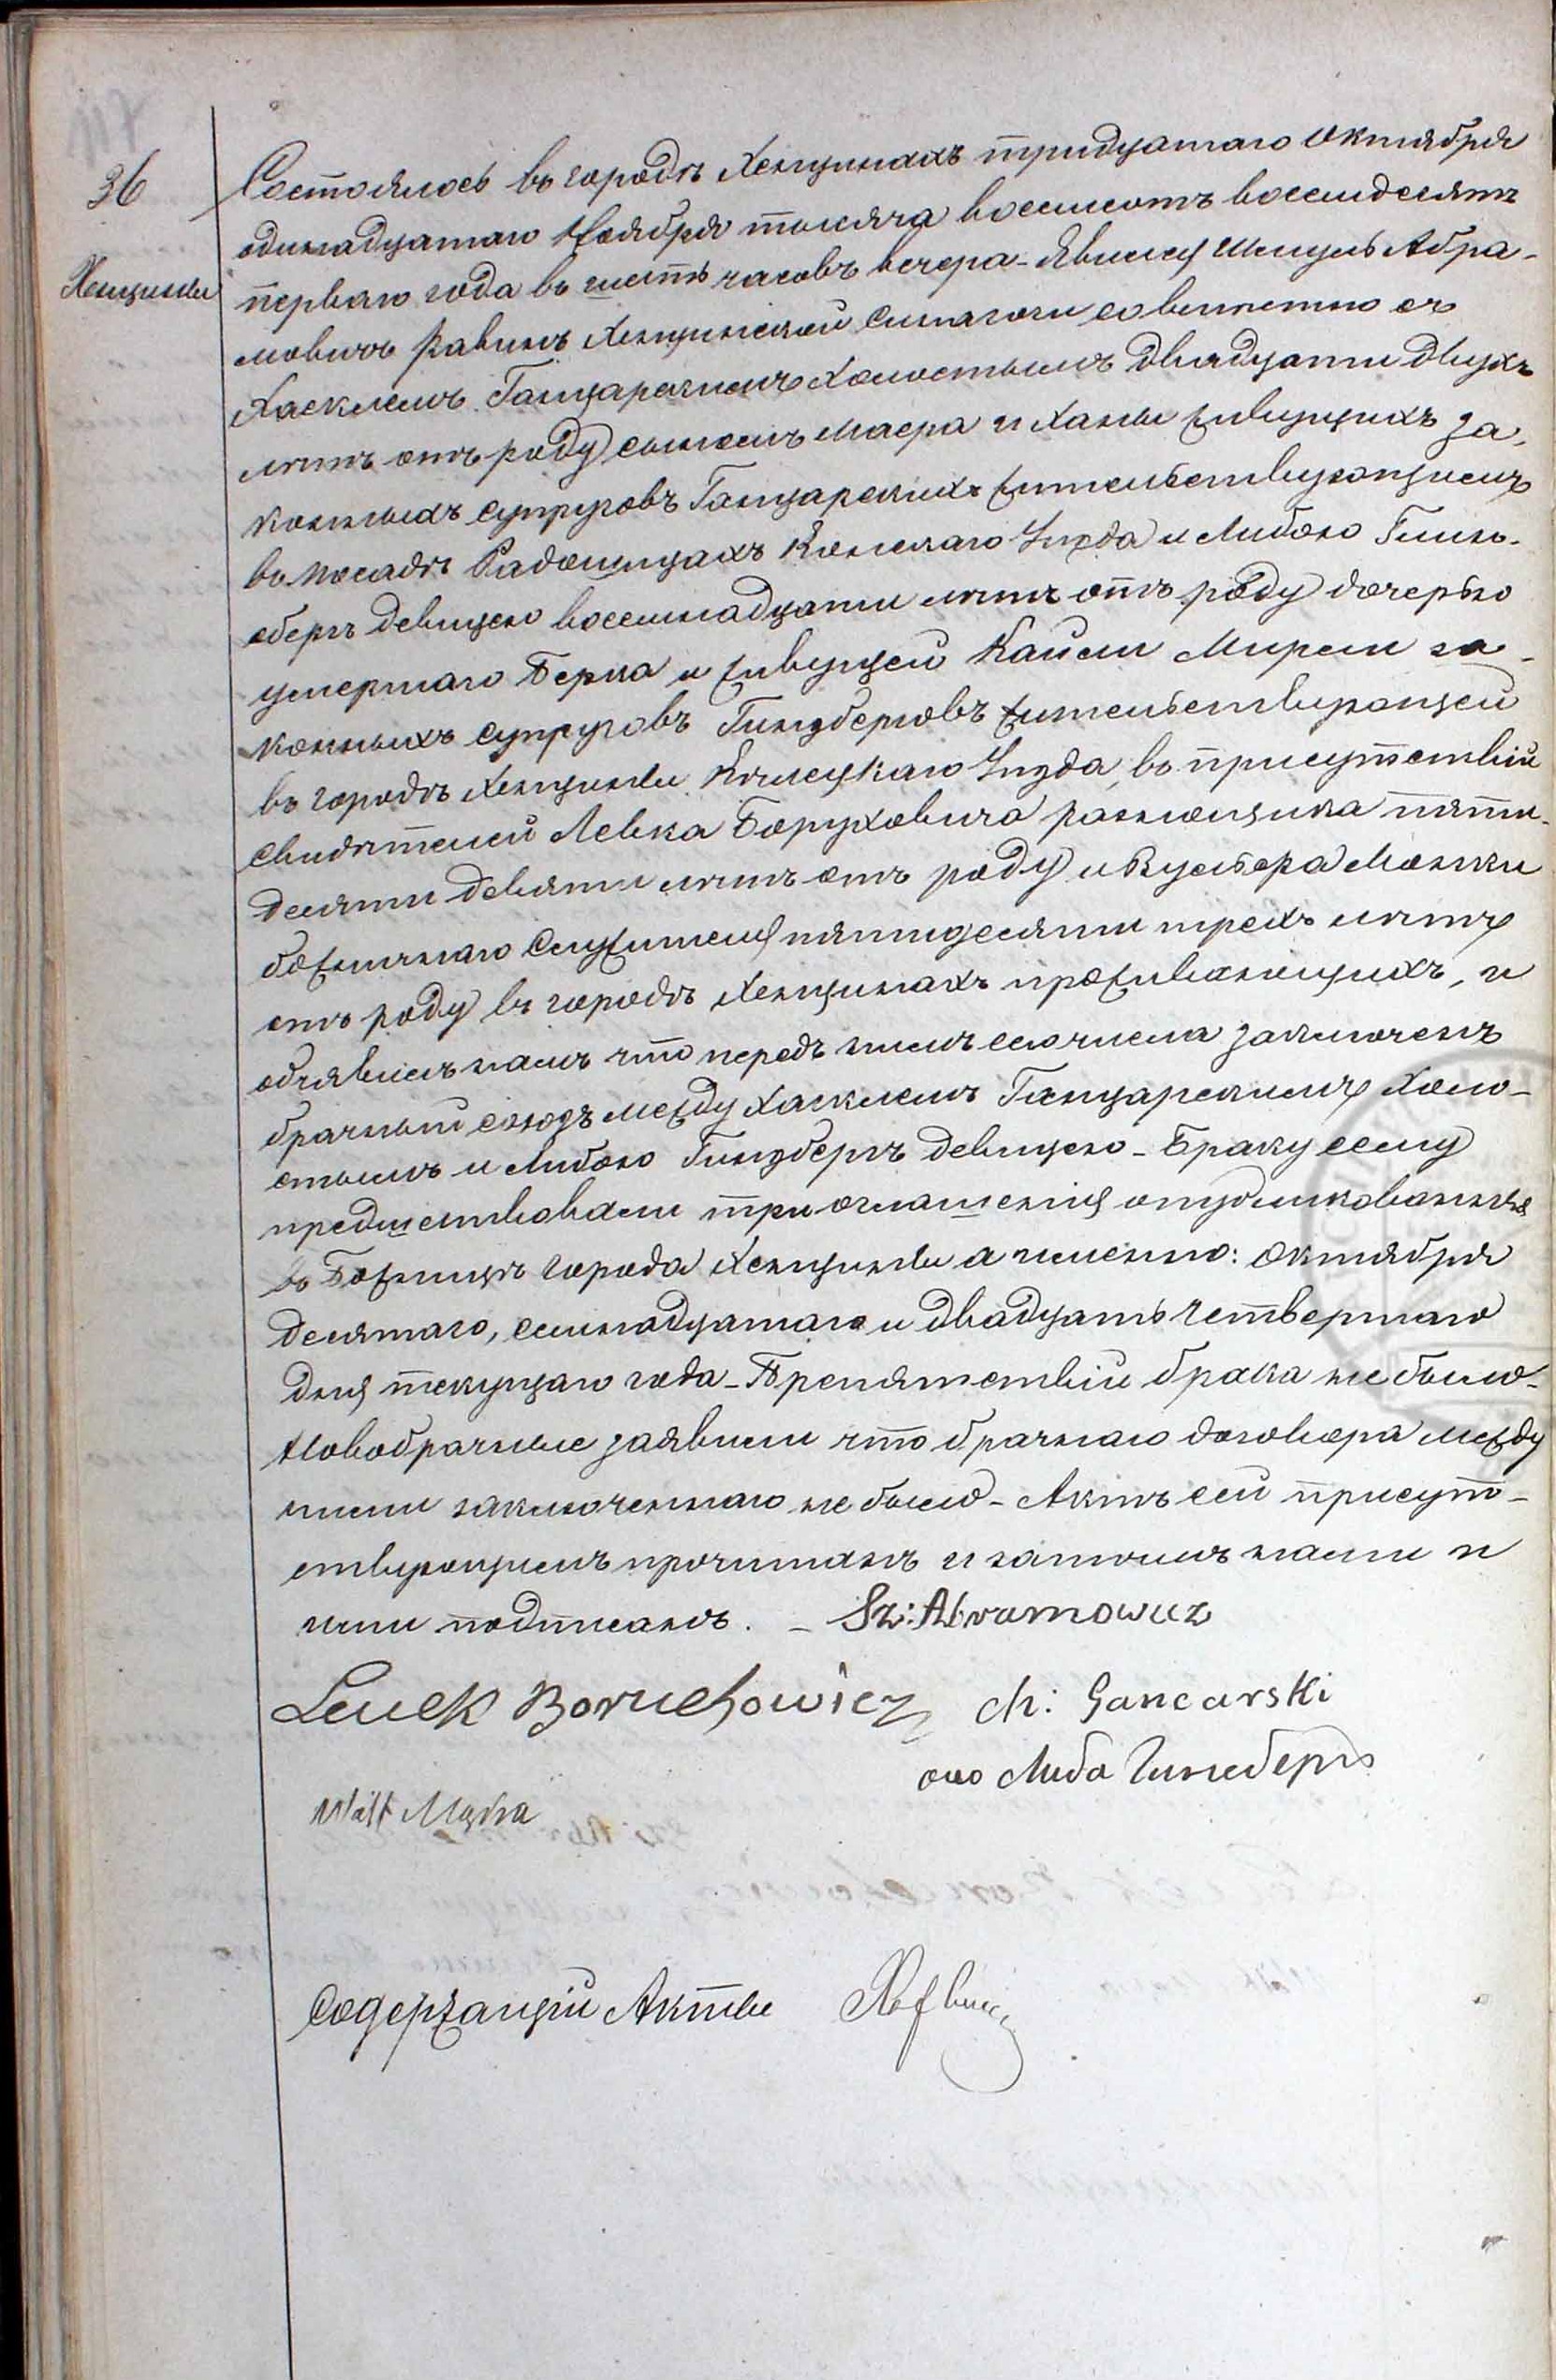 36
Хенцины
Состоялось въ городѣ Хенцинахъ тридцатаго Октября
одинадцатаго Ноября тысяча восемсотъ восемдесятъ
перваго года въ шесть часовъ вечера - Явился Шмуль Абра-
мовичъ Равинъ Хенцинской Синагоги совместно съ
Хаскелемъ Ганцарскимъ Холостымъ двадцати двухъ
лѣтъ отъ роду сыномъ Маера и Ханы живущихъ за-
конныхъ супруговъ Ганцарскихъ жительствующимъ
въ посадѣ Радошицахъ Конскаго Уѣзда и Либою Гинс-
бергъ девицею восемнадцати лѣтъ отъ роду дочерью
умершаго Берка и живущей Кайли Мирли за-
конныхъ супруговъ Гинзберговъ жительствующей
въ городѣ Хенцины Кѣлецкаго Уѣзда, въ присутствіи
свидѣтелей Левка Боруховича разнощика пяти-
десяти девяти лѣтъ отъ роду и Вульфа Монки
божничнаго служителя пятидесяти трехъ лѣтъ
отъ роду въ городѣ Хенцинахъ проживающихъ, и
объявилъ намъ что передъ нимъ сего числа заключенъ
брачный союзъ между Хаскелемъ Ганцарскимъ Холо-
стымъ и Либою Гинзбергъ девицею - Браку сему
предшествовали три оглашенія опубликованныя
въ Божницѣ города Хенцины а именно: Октября
десятаго, семнадцатаго и двадцать четвертаго
дня текущаго года - Препятствій брака не было -
Новобрачные заявили что брачнаго договора между
ними заключеннаго не было - Актъ сей присут-
ствующимъ прочитанъ и затѣмъ нами и
ими подписанъ. - Sz: Abramowicz
Lewek Boruchowicz Ch: Gancarski
Либа Гинсбергъ
Wolf
Содержащій Акты